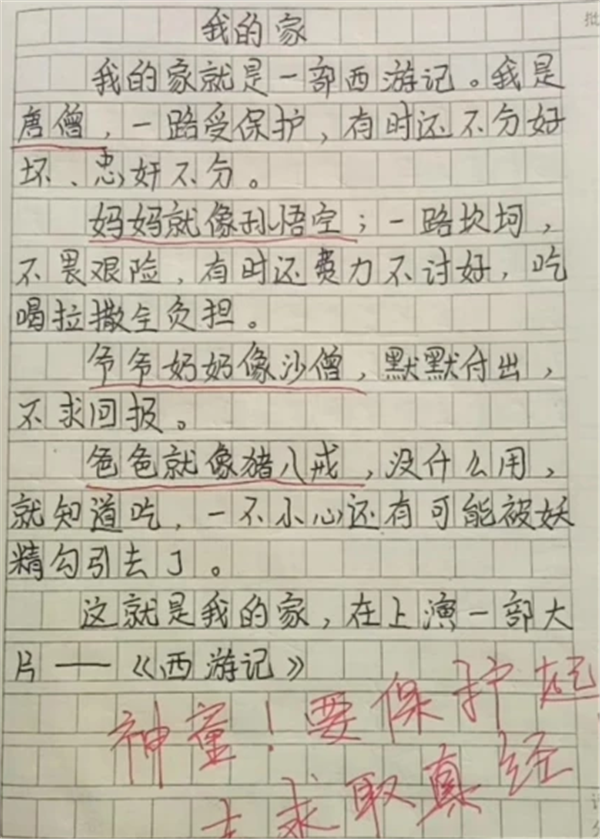 我的家
我的家就是一部西游记。我是
唐僧，一路受保护，有时还不分好
坏、忠奸不分。
妈妈就像孙悟空；一路坎坷，
不畏艰险，有时还费力不讨好，吃
喝拉撒全负担。
爷爷奶奶像沙僧，默默付出，
不求回报。
爸爸就像猪八戒，没什么用，
就知道吃，一不小心还有可能被妖
精勾引去了。
这就是我的家，在上演一部大
片——《西游记》
神童！要保护起
去求取真经
批